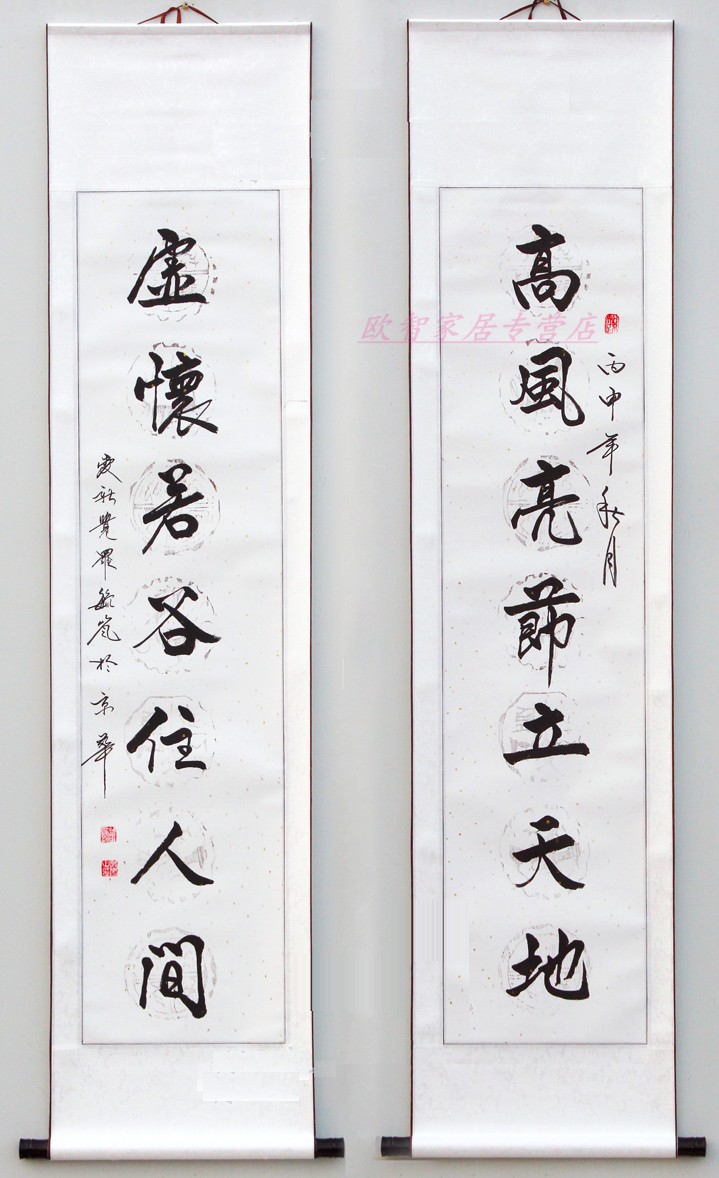 高風亮節立天地
丙申年秋月
虛懷若谷住人間
爱新覺羅毓嵐於京華
欧智家居专营店